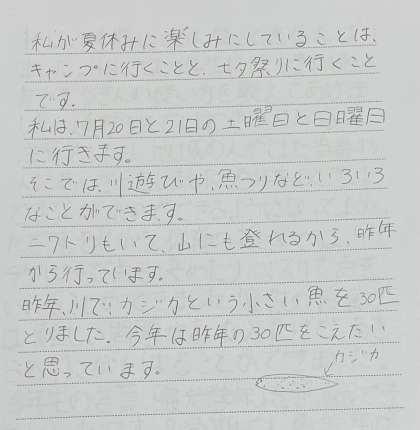 私が夏休みに楽しみにしていることは、
キャンプに行くことと、七夕祭りに行くこと
です。
私は、7月20日と21日の土曜日と日曜日
に行きます。
そこでは、川遊びや、魚つりなど、いろいろ
なことができます。
ニワトリもいて、山にも登れるから、昨年
から行っています。
昨年、川で、カジカという小さい魚を30匹
とりました。今年は昨年の30匹をこえたい
と思っています。
カジカ